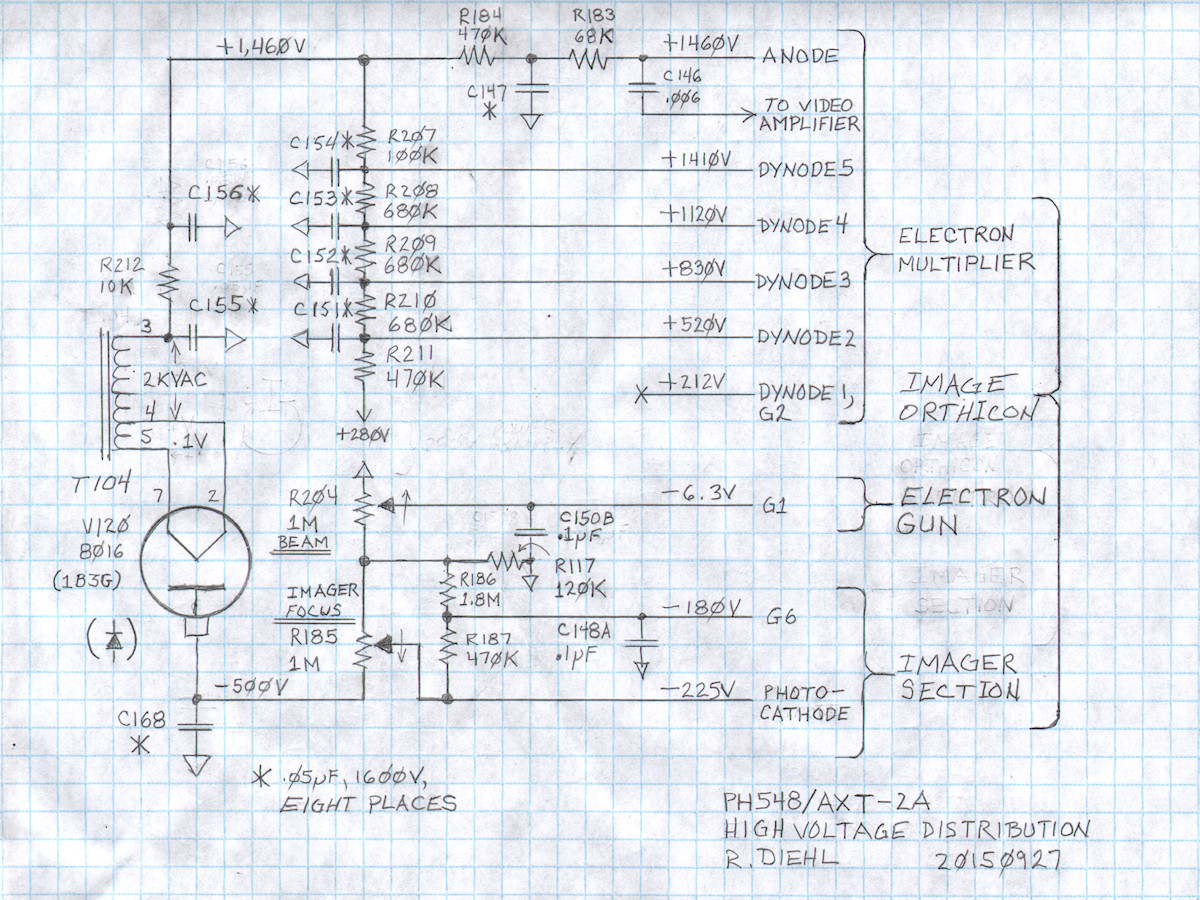 +1,460V
R184
470K
R183
68K
+1460V
ANODE
C147
*
C146
.006
TO VIDEO
AMPLIFIER
C154*
R207
100K
+1410V
DYNODE 5
C156*
C153*
R208
680K
+1120V
DYNODE 4
ELECTRON
MULTIPLIER
C152*
R209
680K
+830V
DYNODE 3
R212
10K
C155*
C151*
R210
680K
+520V
DYNODE 2
3
R211
470K
2KVAC
+212V
DYNODE 1,
G2
IMAGE
ORTHICON
4
5
.1V
+280V
T104
7
2
R204
1M
BEAM
-6.3V
G1
ELECTRON
GUN
V120
8016
(1B3G)
C150B
.1µF
R117
120K
IMAGER
FOCUS
R185
1M
R186
1.8M
-180V
G6
R187
470K
C148A
.1µF
IMAGER
SECTION
-500V
-225V
PHOTO-
CATHODE
C168
*
* .05µF, 1600V,
EIGHT PLACES
PH548/AXT-2A
HIGH VOLTAGE DISTRIBUTION
R. DIEHL 20150927